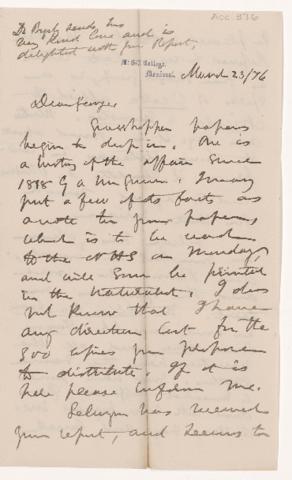 ACC. 376
Dr Bigsby sends his
very kind love and is
delighted with your Report.
McGill College,
Montreal.
March 23/76
Dear George
Grasshopper papers
begin to drop in. One is
a history of the affair since
1818 by a Mr Gunn. I may
put a few of its facts as
a note to your paper,
which is to be read
to the NHS on Monday,
and will soon be printed
in the Naturalist. I does
not know that I have
any direction list for the
300 copies you propose
to distribute. If it is
here please inform me.
Selwyn has received
your report, and seems to